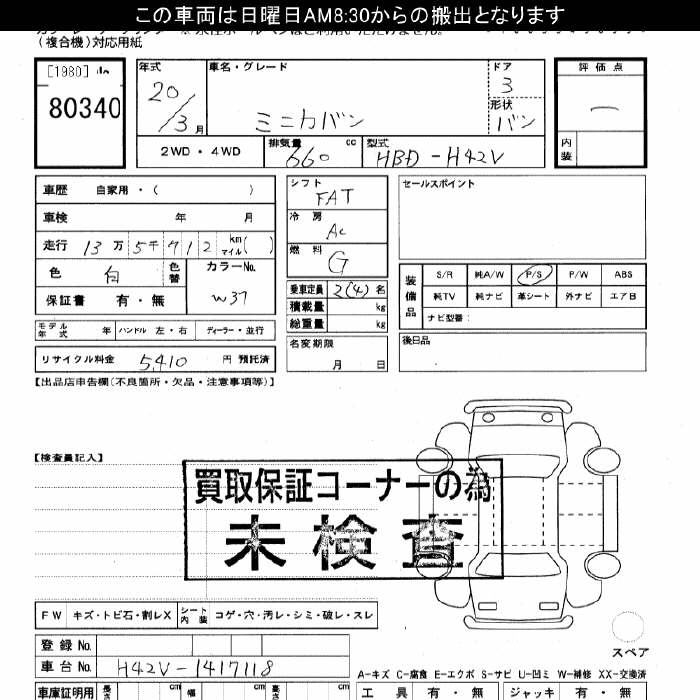 この車両は日曜日AM8:30からの搬出となります
(複合機)対応用紙
[1980]
80340
年式
20/3月
車名・グレード
ミニカバン
ドア
3
形状
バン
評価点
内装
2WD・4WD
排気量
660
cc
型式
HBD-H42V
車歴 自家用・( )
車検 年 月
走行 13万5千912 km マイル( )
色 白 色替
カラーNo.
W37
保証書 有・無
モデル年式 年 ハンドル 左・右 ディーラー・並行
リサイクル料金 5,410 円 預託済
シフト
FAT
冷房
AC
燃料
G
乗車定員 2(4)名
積載量 kg
総重量 kg
名変期限
月 日
セールスポイント
装備品
S/R 純A/W P/S P/W ABS
純TV 純ナビ 革シート 外ナビ エアB
ナビ型番:
後日品
【出品店申告欄(不良箇所・欠品・注意事項等)】
【検査員記入】
買取保証コーナーの為
未検査
FW キズ・トビ石・割レX シート内装 コゲ・穴・汚レ・シミ・破レ・スレ
スペア
登録No.
車台No. H42V-1417118
A-キズ C-腐食 E-エクボ S-サビ U-凹ミ W-補修 XX-交換済
車庫証明用 cm 幅 cm 高さ cm
工具 有・無 ジャッキ 有・無